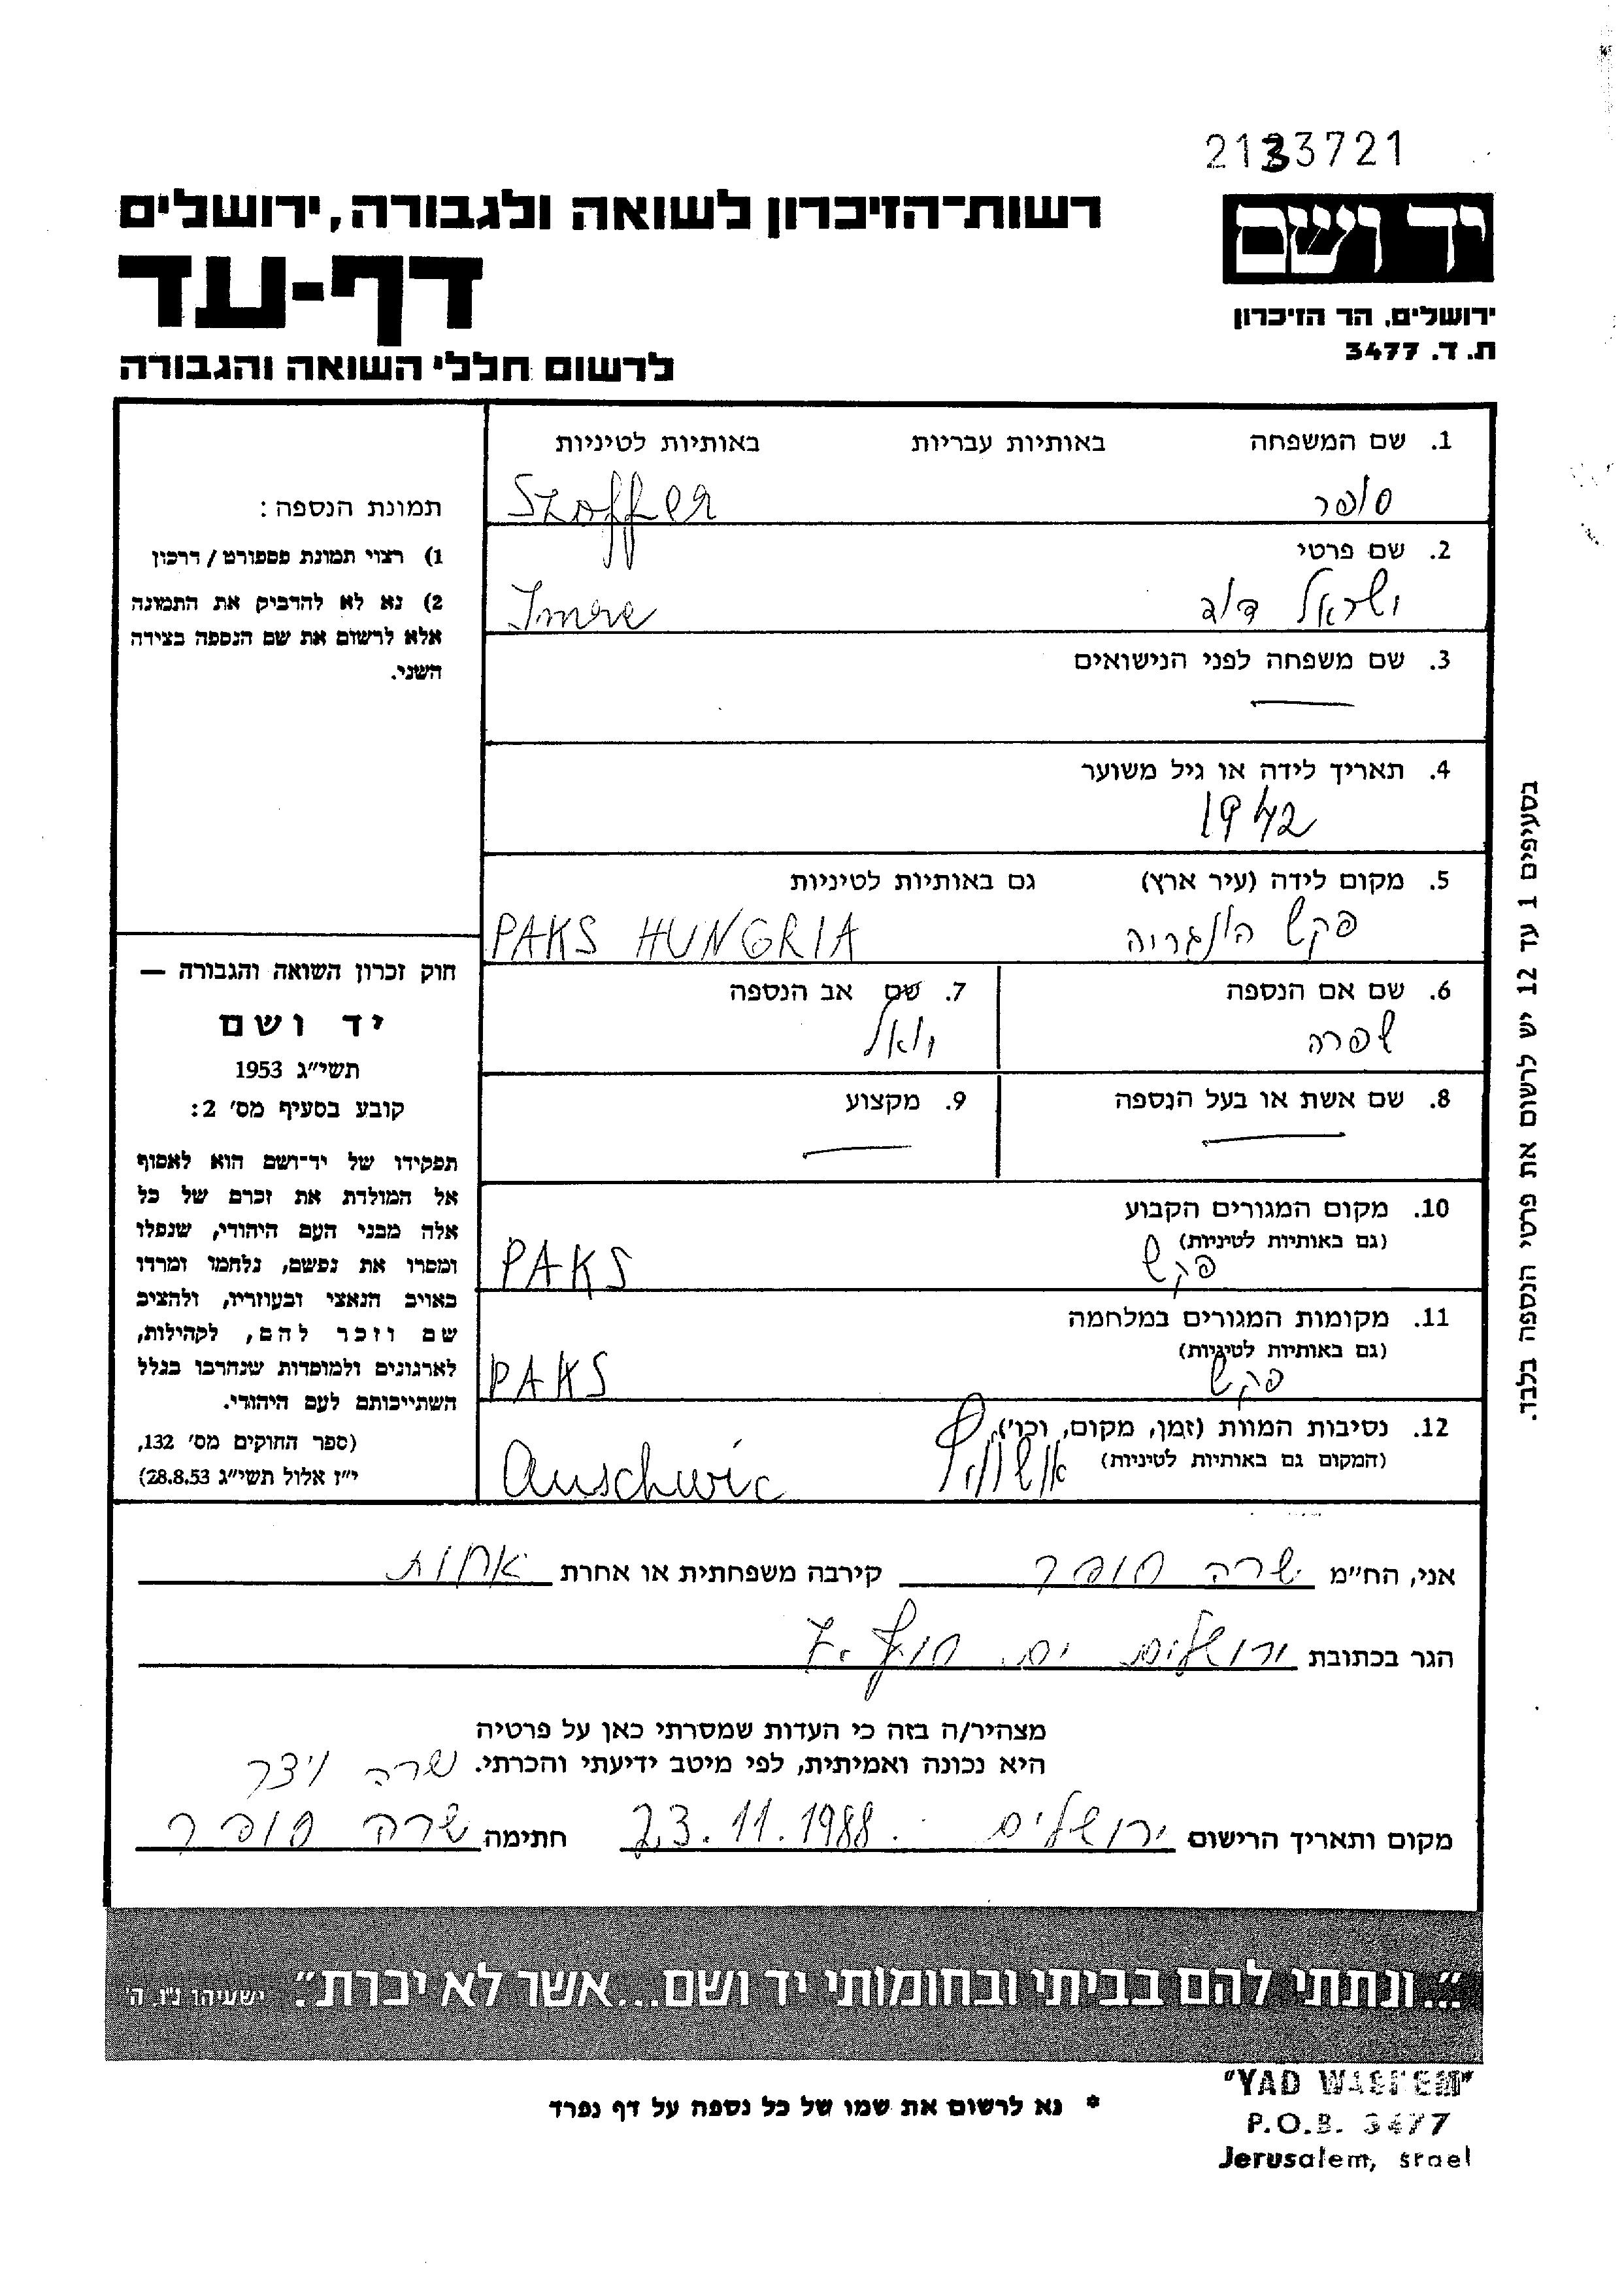 2133721
יד ושם
ירושלים, הר הזיכרון
ת. ד. 3477
רשות־הזיכרון לשואה ולגבורה, ירושלים
דף-עד
לרשום חללי השואה והגבורה
1. שם המשפחה באותיות עבריות באותיות לטיניות
סופר Szoffer
2. שם פרטי
ישראל דוב Imre
3. שם משפחה לפני הנישואים
—
4. תאריך לידה או גיל משוער
1942
5. מקום לידה (עיר ארץ) גם באותיות לטיניות
פקש הונגריה PAKS HUNGRIA
6. שם אם הנספה 7. שם אב הנספה
שפרה יואל
8. שם אשת או בעל הנספה 9. מקצוע
— —
10. מקום המגורים הקבוע
(גם באותיות לטיניות)
פקש PAKS
11. מקומות המגורים במלחמה
(גם באותיות לטיניות)
פקש PAKS
12. נסיבות המוות (זמן, מקום, וכו׳)
(המקום גם באותיות לטיניות)
אושויץ Auschwic
תמונת הנספה:
1) רצוי תמונת פספורט / דרכון
2) נא לא להדביק את התמונה
אלא לרשום את שם הנספה בצידה
השני.
חוק זכרון השואה והגבורה —
יד ושם
תשי״ג 1953
קובע בסעיף מס׳ 2:
תפקידו של יד־ושם הוא לאסוף
אל המולדת את זכרם של כל
אלה מבני העם היהודי, שנפלו
ומסרו את נפשם, נלחמו ומרדו
באויב הנאצי ובעוזריו, ולהציב
שם וזכר להם, לקהילות,
לארגונים ולמוסדות שנהרבו בגלל
השתייכותם לעם היהודי.
(ספר החוקים מס׳ 132,
י״ז אלול תשי״ג 28.8.53)
בסעיפים 1 עד 12 יש לרשום את פרטי הנספה בלבד.
אני, הח״מ שרה סופר קירבה משפחתית או אחרת אחות
הגר בכתובת ירושלים ים סוף 7
מצהיר/ה בזה כי העדות שמסרתי כאן על פרטיה
היא נכונה ואמיתית, לפי מיטב ידיעתי והכרתי.
שרה ויצר
מקום ותאריך הרישום ירושלים 23.11.1988 חתימה שרה סופר
"...ונתתי להם בביתי ובחומותי יד ושם...אשר לא יכרת". ישעיהו נ"ו, ה'
* נא לרשום את שמו של כל נספה על דף נפרד
"YAD WASHEM"
P.O.B. 3477
Jerusalem, srael